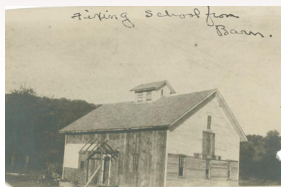 Fixing School from
Barn.